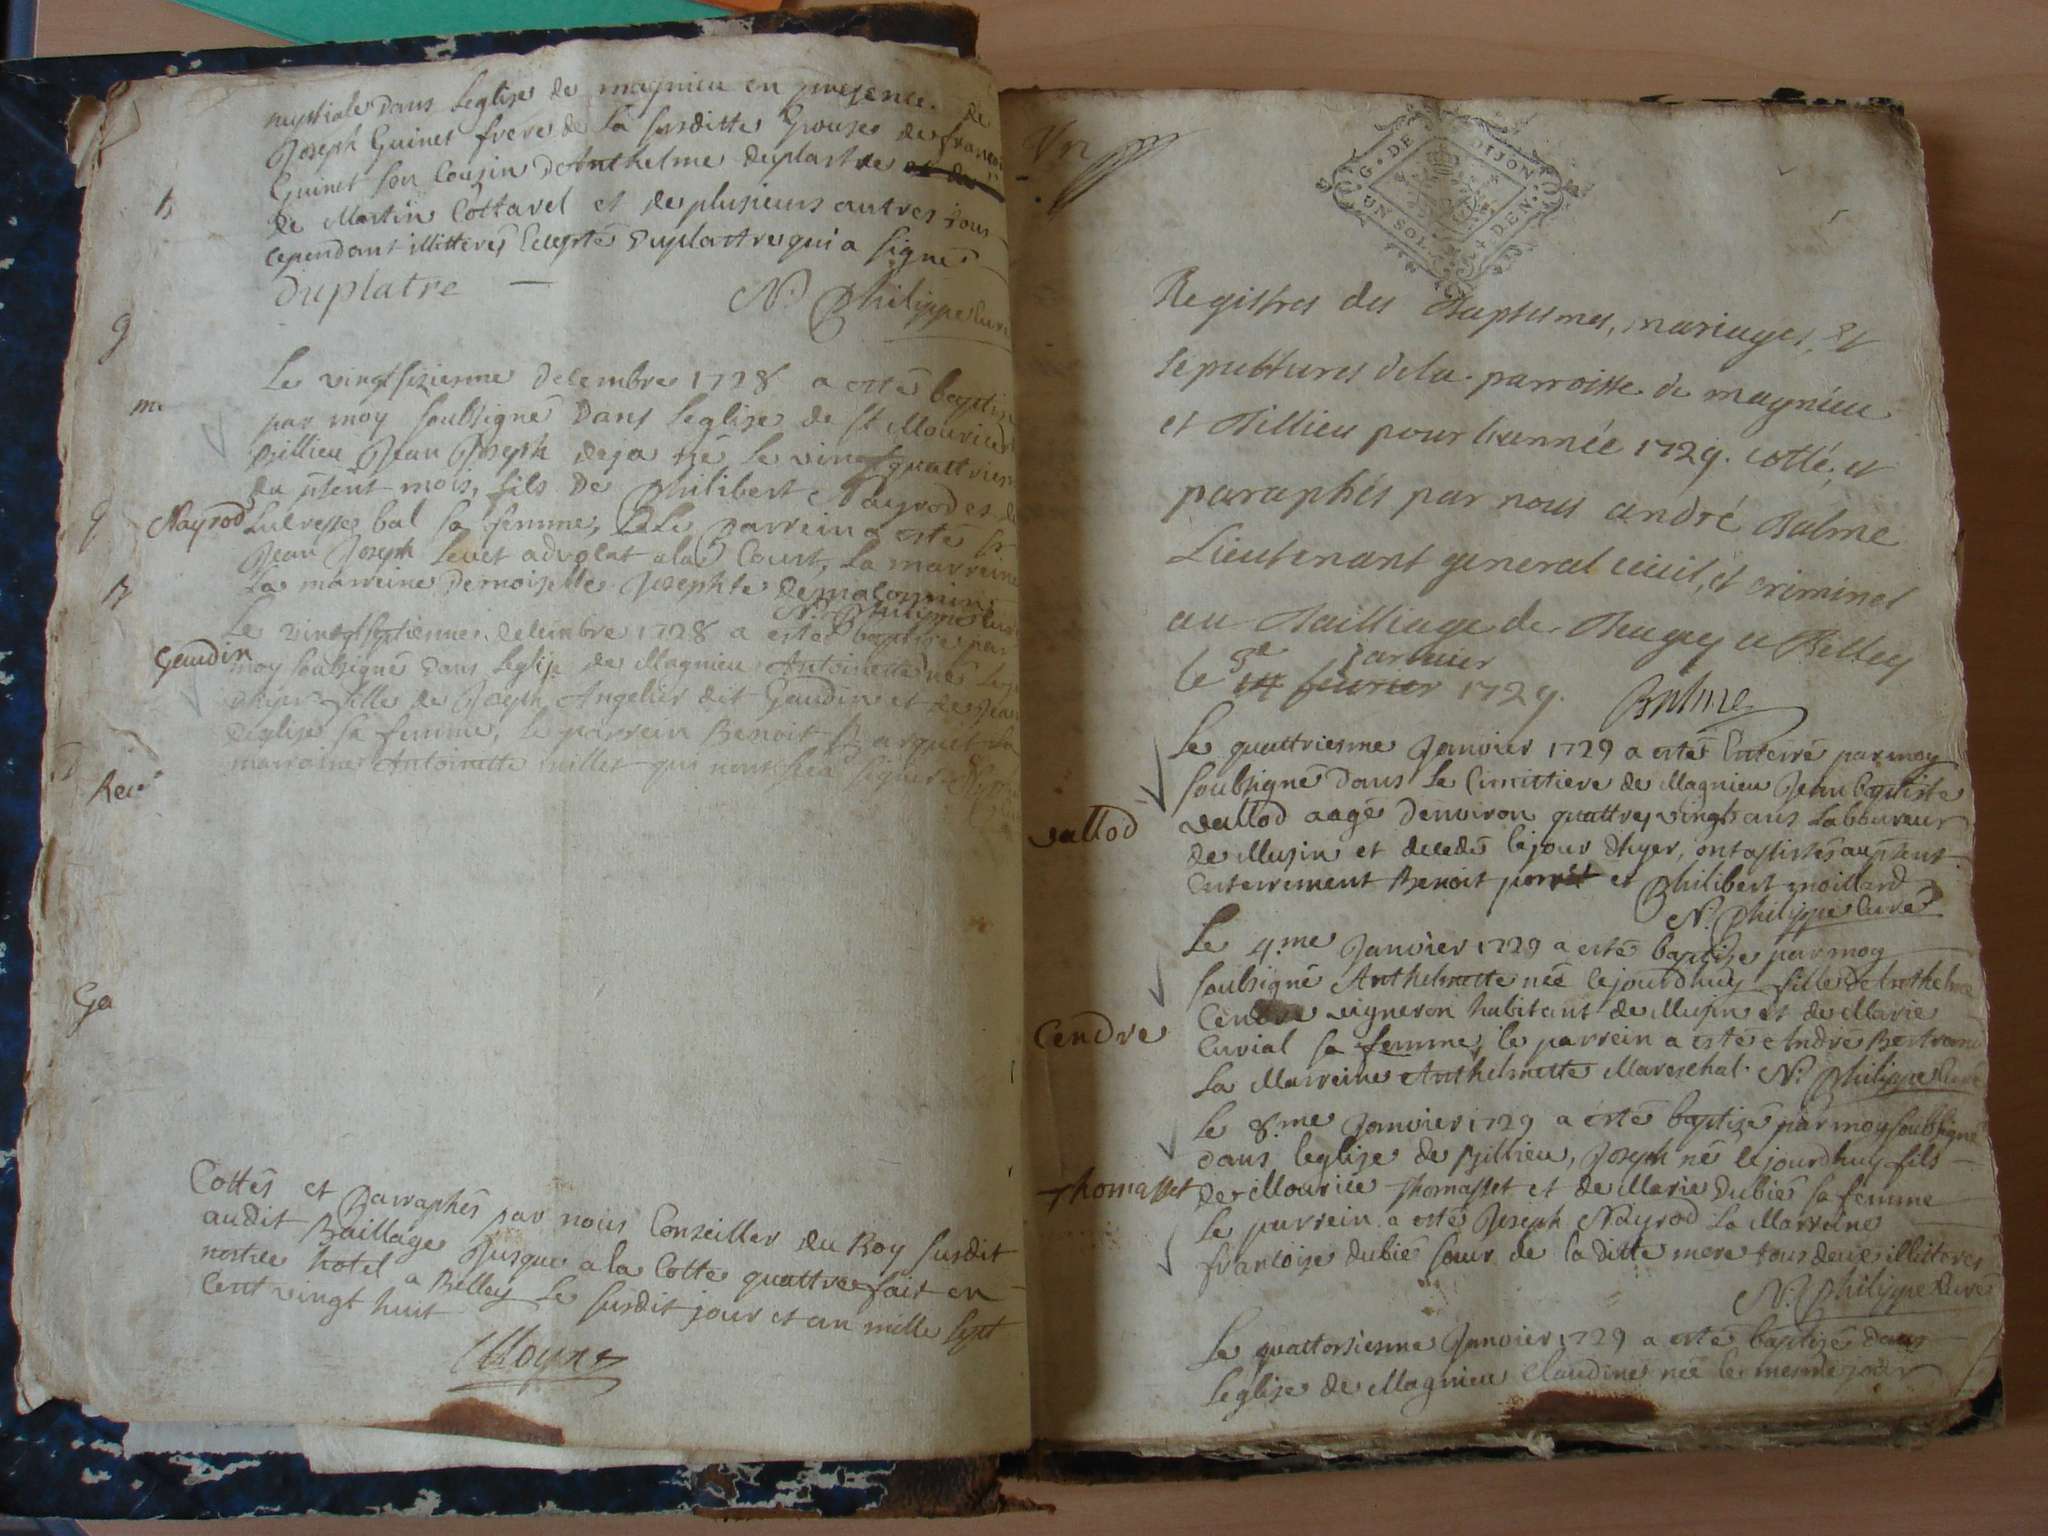 nuptiale dans Leglise de magnieu en presence de
Joseph Guinet frere de la susditte Epouse de francois
Guinet son Cousin D'Anthelme duplastre
de Martin Cottarel et de plusieurs autres tous
cependant illitterés Excepté Duplastre qui a signé
duplatre
N. Philippe Curé
Le vingtsizieme decembre 1728 a esté baptisé
par moy soubsigné dans Leglise de St Maurice de
Billieu Jean Joseph deja né le vingtquattrieme
du pñt mois, fils de Philibert Nayrod et de
Nayrod
Lucresse bal sa femme, Le parrein a esté Sr
Jean Joseph Sevet advocat a la Court, La marreine
La marreine Demoiselle Josephte
N. Philippe Curé
Le vingtseptiemme decembre 1728 a esté baptisée par
Gaudin
moy soubsigné dans Leglise de Magnieu Antoinette née
d'hyer fille de Joseph Angelier dit Gaudin et de
Deglise sa femme, le parrein Benoit Barquet La
marraine Antoinette millet qui n'ont sceu signer N. Philippe
Cottés et Parraphés par nous Conseiller du Roy susdit
audit Baillage Jusque a la Cotte quattre fait en
nostre hotel a Belley Le susdit jour et an mille sept
Cent vingt huit
G. DE DIJON
UN SOL 4 DEN.
Registres des Baptesmes, mariages, et
sepultures de la parroisse de magnieu
et Billieu pour l'année 1729. cotté, et
paraphés par nous andré Balme
Lieutenant general civil, et criminel
au Bailliage de Beugey a Belley
le 3e Janvier
14 fevrier 1729.
Balme
Le quattriesme Janvier 1729 a esté Enterré par moy
soubsigné dans Le Cimittiere de Magnieu Jean baptiste
vallod
vallod aagé d'environ quattre vingts ans Laboureur
de Musin et decedé le jour d'hyer, ont assistés au pñt
Enterrement Benoit et Philibert moillard
N. Philippe Curé
Le 4.me Janvier 1729 a esté baptizé par moy
soubsigné Anthelmette née ce jourdhuy fille d'Anthelme
Cendre vigneron habitant de Musin et de Marie
Cendre
Curial sa femme, le parrein a esté André Bertrand
La Marreine Anthelmette Mareschal. N. Philippe Curé
Le 8.me Janvier 1729 a esté baptizé par moy soubsigné
dans leglise de Billieu, Joseph né le jourdhuy fils
Thomasset
de Maurice Thomasset et de Marie Dubié sa femme
Le parrein a esté Joseph Nayrod La Marreine
francoise Dubié sœur de la ditte mere tous deux illitterés
N. Philippe Curé
Le quattorsiesme Janvier 1729 a esté baptisé dans
Leglise de Magnieu Claudine née le mesme jour